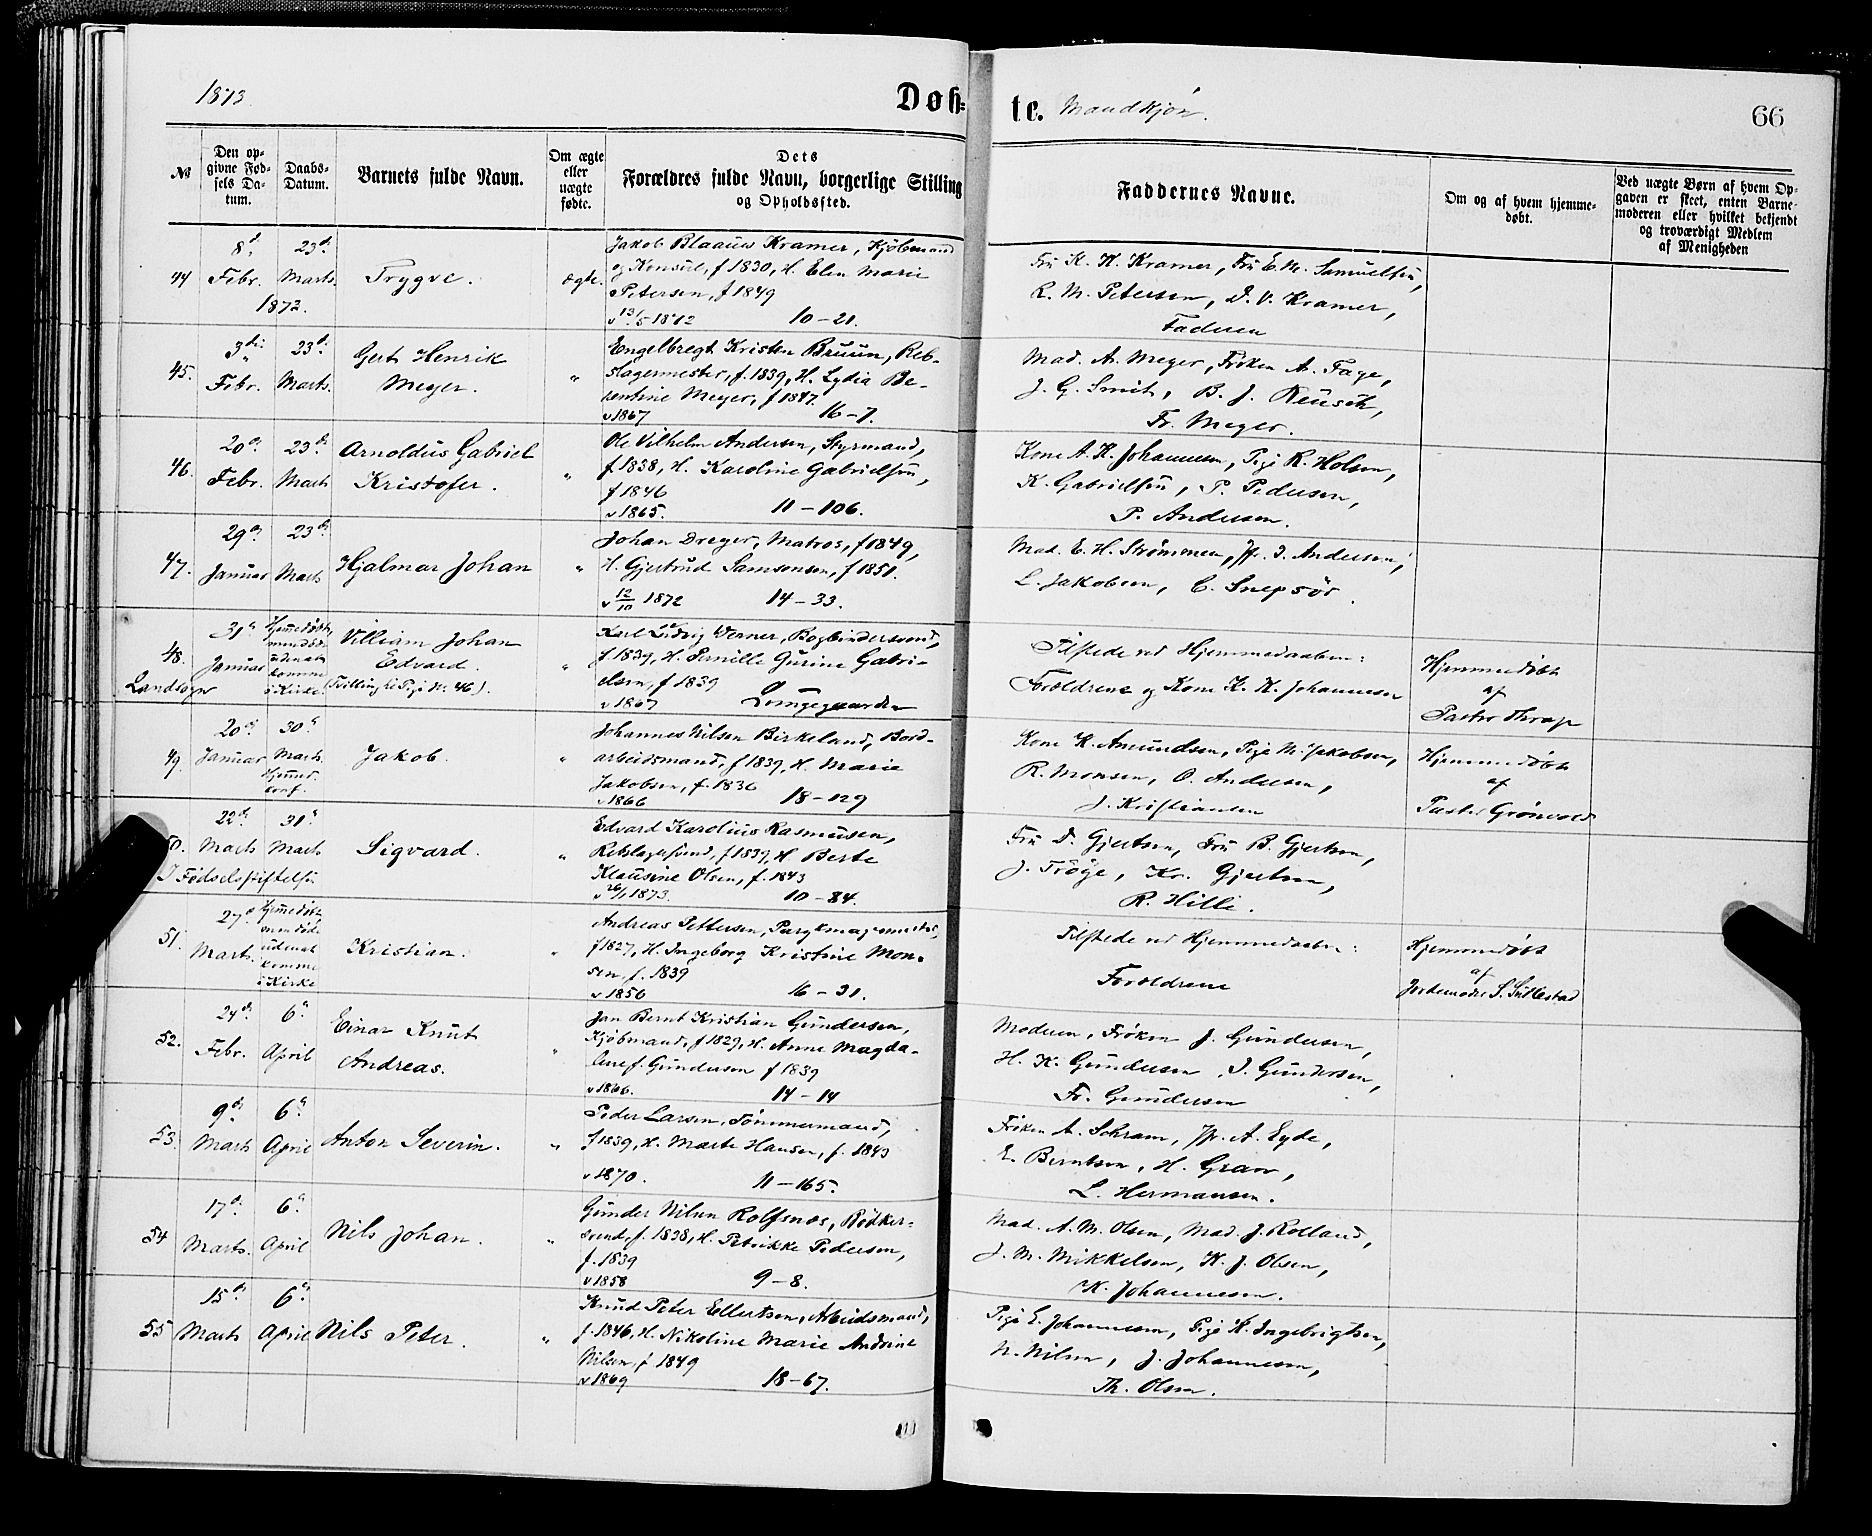 1873.
Døb-
te. Mandkjøn.
66
№
Den op-
givne Fød-
sels Da-
tum.
Daabs-
Datum.
Barnets fulde Navn.
Om ægte
eller
uægte
fødte.
Dets
Forældres fulde Navn, borgerlige Stilling
og Opholdssted.
Faddernes Navne.
Om og af hvem hjemme-
døbt.
Ved uægte Børn af hvem Op-
gaven er skeet, enten Barne-
moderen eller hvilket bekjendt
og troværdigt Medlem
af Menigheden
44
8d
Febr.
1872.
23d
Marts.
Trygve.
ægte.
Jakob Blaauw Kramer, Kjøbmand
og Konsul, f 1830, H. Elen Marie
Petersen, f 1849
v 13/5 1872 10-21.
Fru K. H. Kramer, Fru E. M. Samuelsen,
R. M. Petersen, D. V. Kramer,
Faderen
45.
3die
Febr.
23d
Marts.
Gert Henrik
Meyer.
"
Engelbregt Kristen Bruun, Reb-
slagermester, f. 1839, H. Lydia Be-
rentine Meyer, f 1847.
v 1867 16-7.
Mad. A. Meyer, Frøken A. Fage,
J. G. Smit, B. J. Reusch,
Fr. Meyer.
46.
20de
Febr.
23d
Marts
Arnoldus Gabriel
Kristofer.
"
Ole Vilhelm Andersen, Styrmand,
f 1838, H. Karoline Gabrielsen,
f 1846
v 1865. 11-106.
Kone A. K. Johannesen, Pige R. Holsen,
K. Gabrielsen, P. Pedersen,
P. Andersen.
47.
29de
Januar
23d
Marts
Hjalmar Johan
"
Johan Dreyer, Matros, f 1849,
H. Gjertrud Samsonsen, f 1851.
v 12/10 1872 14-33.
Mad. E. H. Strømmen, Jfr. I. Andersen,
L. Jakobsen, C. Snepsør.
48.
Landsogn
31te
Januar
Hjemmedøbt,
men død
uden at
komme
i Kirke
Villiam Johan
Edvard.
(Tvilling til Pige Nr. 46).
"
Karl Ludvig Werner, Bogbindersvend,
f 1839, H. Pernille Gurine Gabri-
elsen, f 1839
v 1867 Lungegaarden
Tilstede ved Hjemmedaaben:
Forældrene og Kone K. K. Johannesen
Hjemmedøbt
af
Pastor Thrap
49.
20de
Januar
30te
Marts
Hjemmed.
conf.
Jakob.
"
Johannes Nilsen Birkeland, Bord-
arbeidsmand, f 1839, H. Marie
Jakobsen, f. 1836
v 1866 18-129
Kone K. Amundsen, Pige M. Jakobsen,
R. Monsen, O. Andersen,
J. Kristiansen
Hjemmedøbt
af
Pastor Grønvold
50.
I Fødselsstiftelsen
22de
Marts
31te
Marts
Sigvard.
"
Edvard Karolius Rasmussen,
Rebslagersvend, f 1839, H. Berte
Klausine Olsen, f. 1843
v 26/1 1873. 10-84.
Fru D. Gjertsen, Fru B. Gjertsen,
J. Trøge, Kr. Gjertsen,
R. Hille.
51.
27de
Marts.
Hjemmedøbt
men døde
uden at
komme
i Kirke
Kristian.
"
Andreas Pettersen, Parykmagermester,
f 1827, H. Ingeborg Kristine Mon-
sen, f. 1839
v 1856 16-31.
Tilstede ved Hjemmedaaben:
Forældrene
Hjemmedøbt
af
Jordemoder S. Sællestad
52.
24de
Febr.
6te
April
Einar Knut
Andreas.
"
Jan Bernt Kristian Gundersen,
Kjøbmand, f 1829, H. Anne Magda-
lene f. Gundersen f 1839
v 1866. 14-14
Moderen, Frøken J. Gundersen,
H. K. Gundersen, I. Gundersen,
Fr. Gundersen
53.
9de
Marts
6te
April
Anton Severin.
"
Peder Larsen, Tømmermand,
f 1839, H. Marte Hansen, f. 1843
v 1870. 11-165.
Frøken A. Schram, Jfr. A. Eyde,
E. Berntsen, H. Grav,
L. Hermansen.
54
17de
Marts.
6te
April
Nils Johan.
"
Gunder Nilsen Rolfsnes, Bødker-
svend, f. 1838, H. Petrikke Pedersen,
f. 1839
v 1858 9-8.
Mad. A. M. Olsen, Mad. J. Rolland,
J. M. Mikkelsen, K. J. Olsen,
K. Johannesen.
55
15de
Marts
6te
April
Nils Peter.
"
Knud Peter Ellertsen, Arbeidsmand,
f. 1846, H. Nikoline Marie Andrine
Nilsen, f 1849
v 1869 18-67.
Pige E. Johannesen, Pige K. Ingebrigtsen,
N. Nilsen, J. Johannesen,
Th. Olsen.